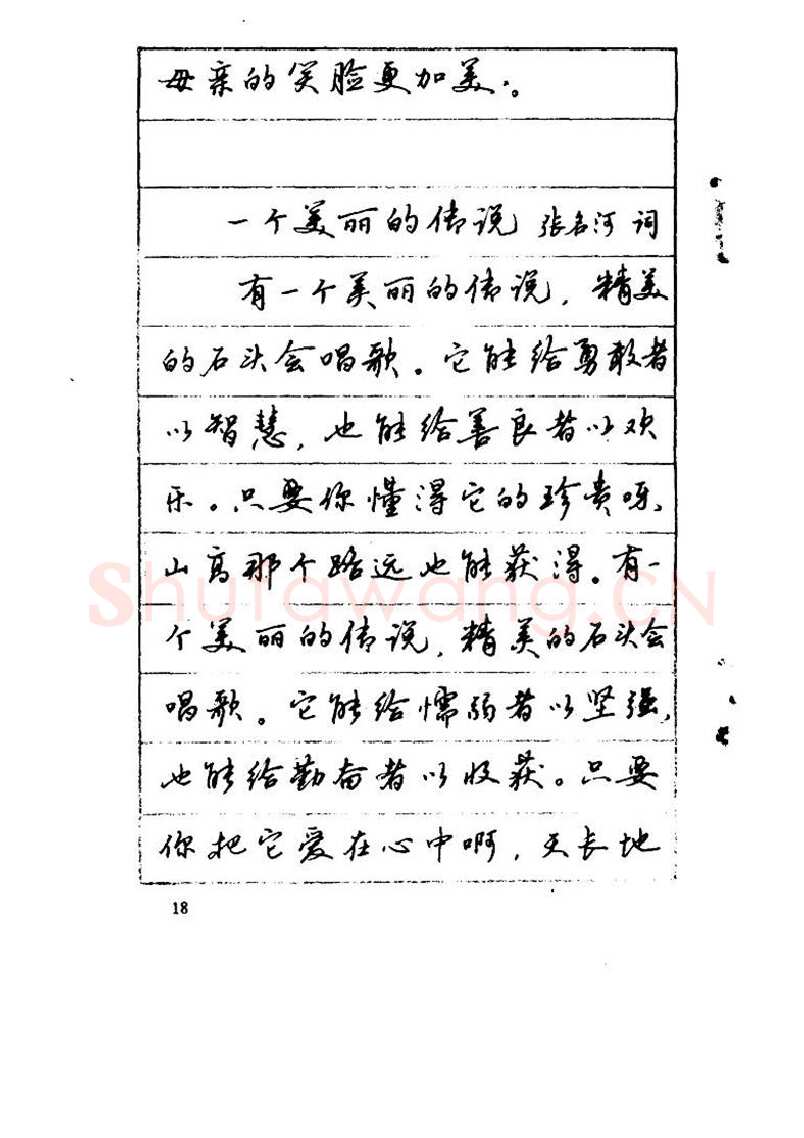 母亲的笑脸更加美。
一个美丽的传说 张名河 词
有一个美丽的传说，精美
的石头会唱歌。它能给勇敢者
以智慧，也能给善良者以欢
乐。只要你懂得它的珍贵呀，
山高那个路远也能获得。有一
个美丽的传说，精美的石头会
唱歌。它能给懦弱者以坚强，
也能给勤奋者以收获。只要
你把它爱在心中啊，天长地
18
Shufawang.CN